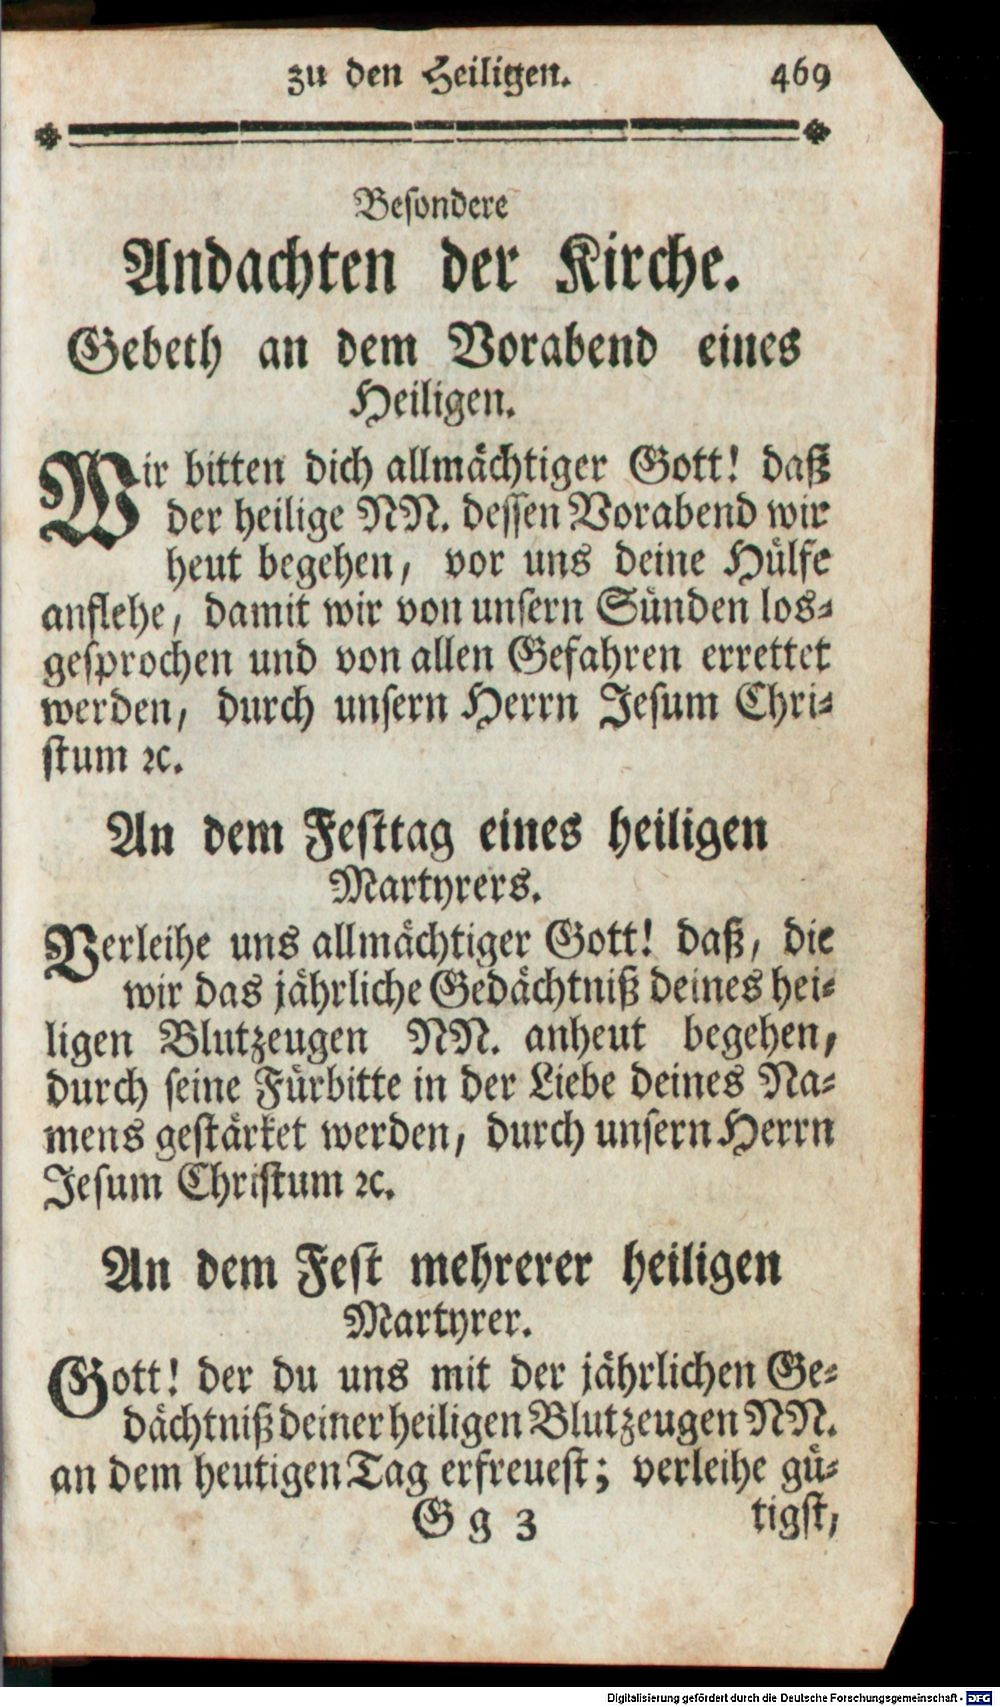 zu den Heiligen. 469
Besondere
Andachten der Kirche.
Gebeth an dem Vorabend eines
Heiligen.
Wir bitten dich allmächtiger Gott! daß
der heilige NN. dessen Vorabend wir
heut begehen, vor uns deine Hülfe
anflehe, damit wir von unsern Sünden los-
gesprochen und von allen Gefahren errettet
werden, durch unsern Herrn Jesum Chri-
stum ꝛc.
An dem Festtag eines heiligen
Martyrers.
Verleihe uns allmächtiger Gott! daß, die
wir das jährliche Gedächtniß deines hei-
ligen Blutzeugen NN. anheut begehen,
durch seine Fürbitte in der Liebe deines Na-
mens gestärket werden, durch unsern Herrn
Jesum Christum ꝛc.
An dem Fest mehrerer heiligen
Martyrer.
Gott! der du uns mit der jährlichen Ge-
dächtniß deiner heiligen Blutzeugen NN.
an dem heutigen Tag erfreuest; verleihe gü-
G g 3 tigst,
Digitalisierung gefördert durch die Deutsche Forschungsgemeinschaft - DFG